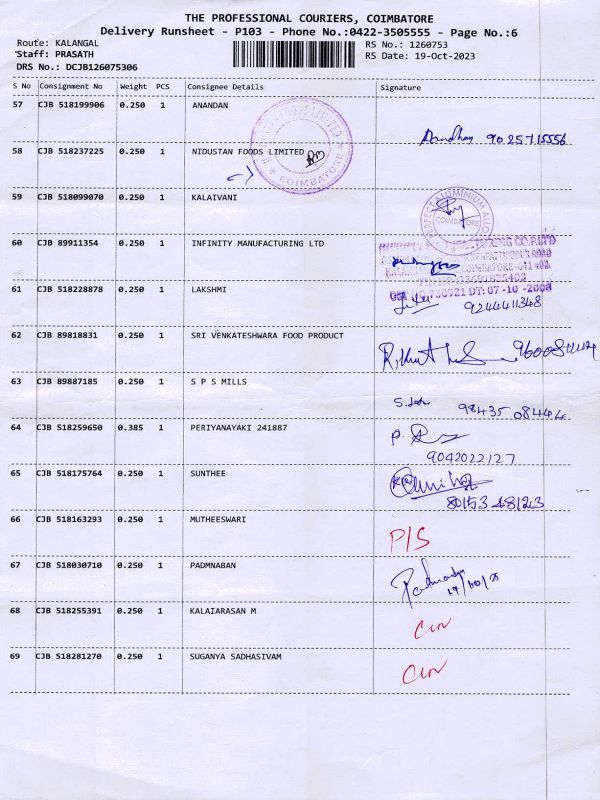 THE PROFESSIONAL COURIERS, COIMBATORE
Delivery Runsheet - P103 - Phone No.:0422-3505555 - Page No.:6
Route: KALANGAL
Staff: PRASATH
DRS No.: DCJB126075306
RS No.: 1260753
RS Date: 19-Oct-2023
S No Consignment No Weight PCS Consignee Details Signature
57 CJB 518199906 0.250 1 ANANDAN
9025715556
58 CJB 518237225 0.250 1 NIDUSTAN FOODS LIMITED
COIMBATORE
59 CJB 518099070 0.250 1 KALAIVANI
COIMBATORE
60 CJB 89911354 0.250 1 INFINITY MANUFACTURING LTD
DT: 07-10-2008
61 CJB 518228878 0.250 1 LAKSHMI
9244411348
62 CJB 89818831 0.250 1 SRI VENKATESHWARA FOOD PRODUCT
63 CJB 89887185 0.250 1 S P S MILLS
98435 08444
64 CJB 518259650 0.385 1 PERIYANAYKI 241887
9042022127
65 CJB 518175764 0.250 1 SUNTHEE
80153 48123
66 CJB 518163293 0.250 1 MUTHEESWARI
P/S
67 CJB 518030710 0.250 1 PADMNABAN
68 CJB 518255391 0.250 1 KALAIARASAN M
69 CJB 518281270 0.250 1 SUGANYA SADHASIVAM